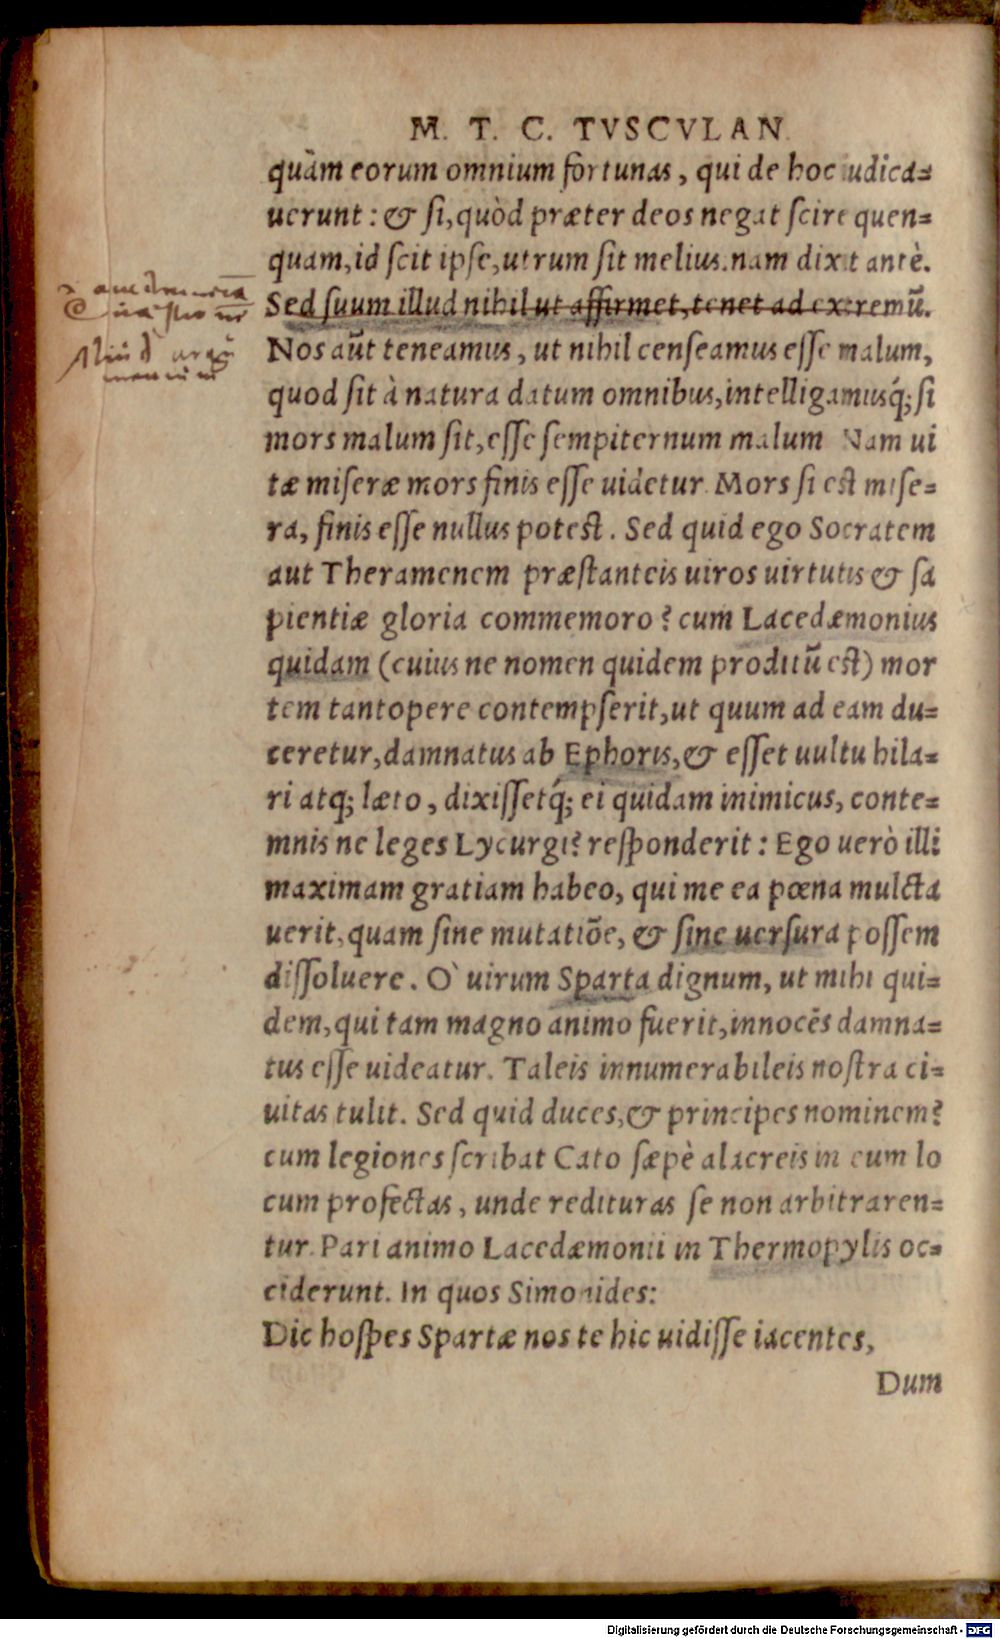 M. T. C. TVSCVLAN.
quàm eorum omnium fortunas, qui de hoc iudica=
uerunt: & si, quòd præter deos negat scire quen=
quam, id scit ipse, utrum sit melius. nam dixit antè.
Sed suum illud nihil ut affirmet, tenet ad extremū.
Nos aūt teneamus, ut nihil censeamus esse malum,
quod sit à natura datum omnibus, intelligamusq́; si
mors malum sit, esse sempiternum malum Nam ui
tæ miseræ mors finis esse uidetur. Mors si est mise=
ra, finis esse nullus potest. Sed quid ego Socratem
aut Theramenem præstanteis uiros uirtutis & sa
pientiæ gloria commemoro? cum Lacedæmonius
quidam (cuius ne nomen quidem proditū est) mor
tem tantopere contempserit, ut quum ad eam du=
ceretur, damnatus ab Ephoris, & esset uultu hila=
ri atq; læto, dixissetq́; ei quidam inimicus, conte=
mnis ne leges Lycurgi? responderit: Ego uerò illi
maximam gratiam habeo, qui me ea pœna mulcta
uerit, quam sine mutatiōe, & sine uersura possem
dissoluere. O` uirum Sparta dignum, ut mihi qui=
dem, qui tam magno animo fuerit, innocēs damna=
tus esse uideatur. Taleis innumerabileis nostra ci=
uitas tulit. Sed quid duces, & principes nominem?
cum legiones scribat Cato sæpè alacreis in eum lo
cum profectas, unde redituras se non arbitraren=
tur. Pari animo Lacedæmonii in Thermopylis oc=
ciderunt. In quos Simonides:
Dic hospes Spartæ nos te hic uidisse iacentes,
Dum
Digitalisierung gefördert durch die Deutsche Forschungsgemeinschaft - DFG